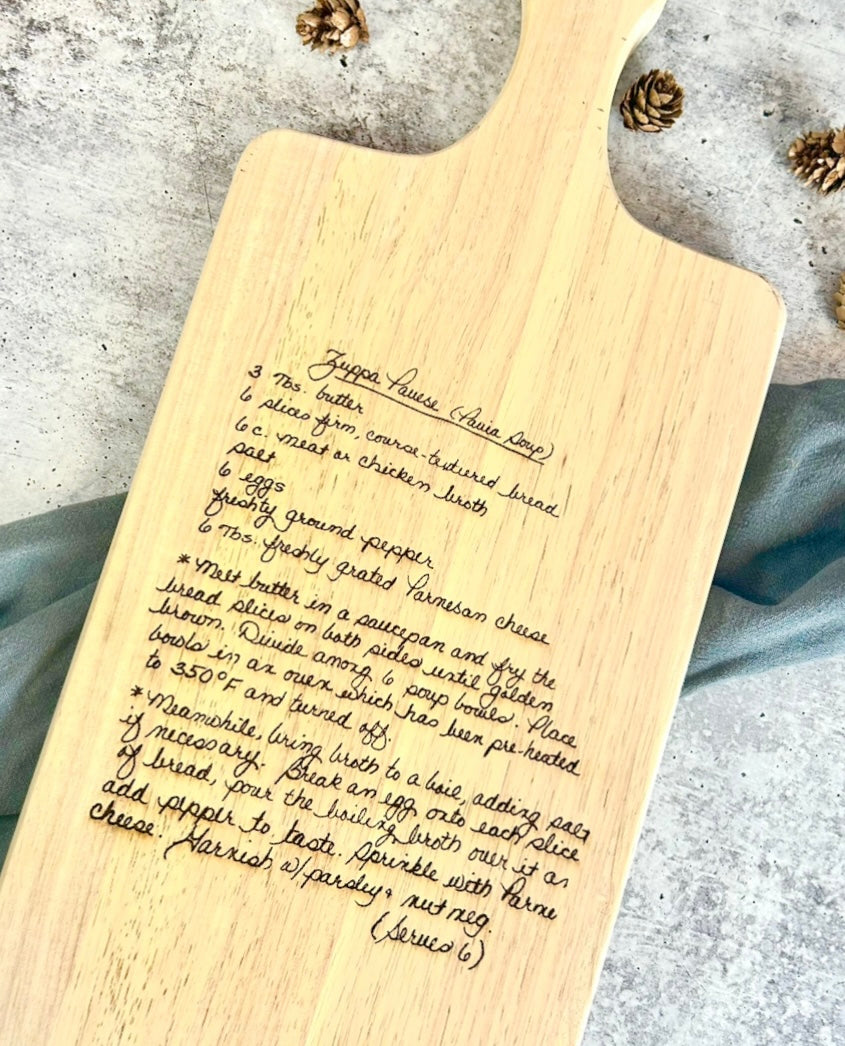 Zuppa Pavese (Pavia Soup)
3 Tbs. butter
6 slices firm, course-textured bread
6 c. meat or chicken broth
salt
6 eggs
freshly ground pepper
6 Tbs. freshly grated Parmesan cheese
* Melt butter in a saucepan and fry the
bread slices on both sides until golden
brown. Divide among 6 soup bowls. Place
bowls in an oven which has been pre-heated
to 350°F and turned off.
* Meanwhile, bring broth to a boil, adding salt
if necessary. Break an egg onto each slice
of bread, pour the boiling broth over it an
add pepper to taste. Sprinkle with Parme
cheese. (Garnish w/parsley & nutmeg.
(Serves 6)